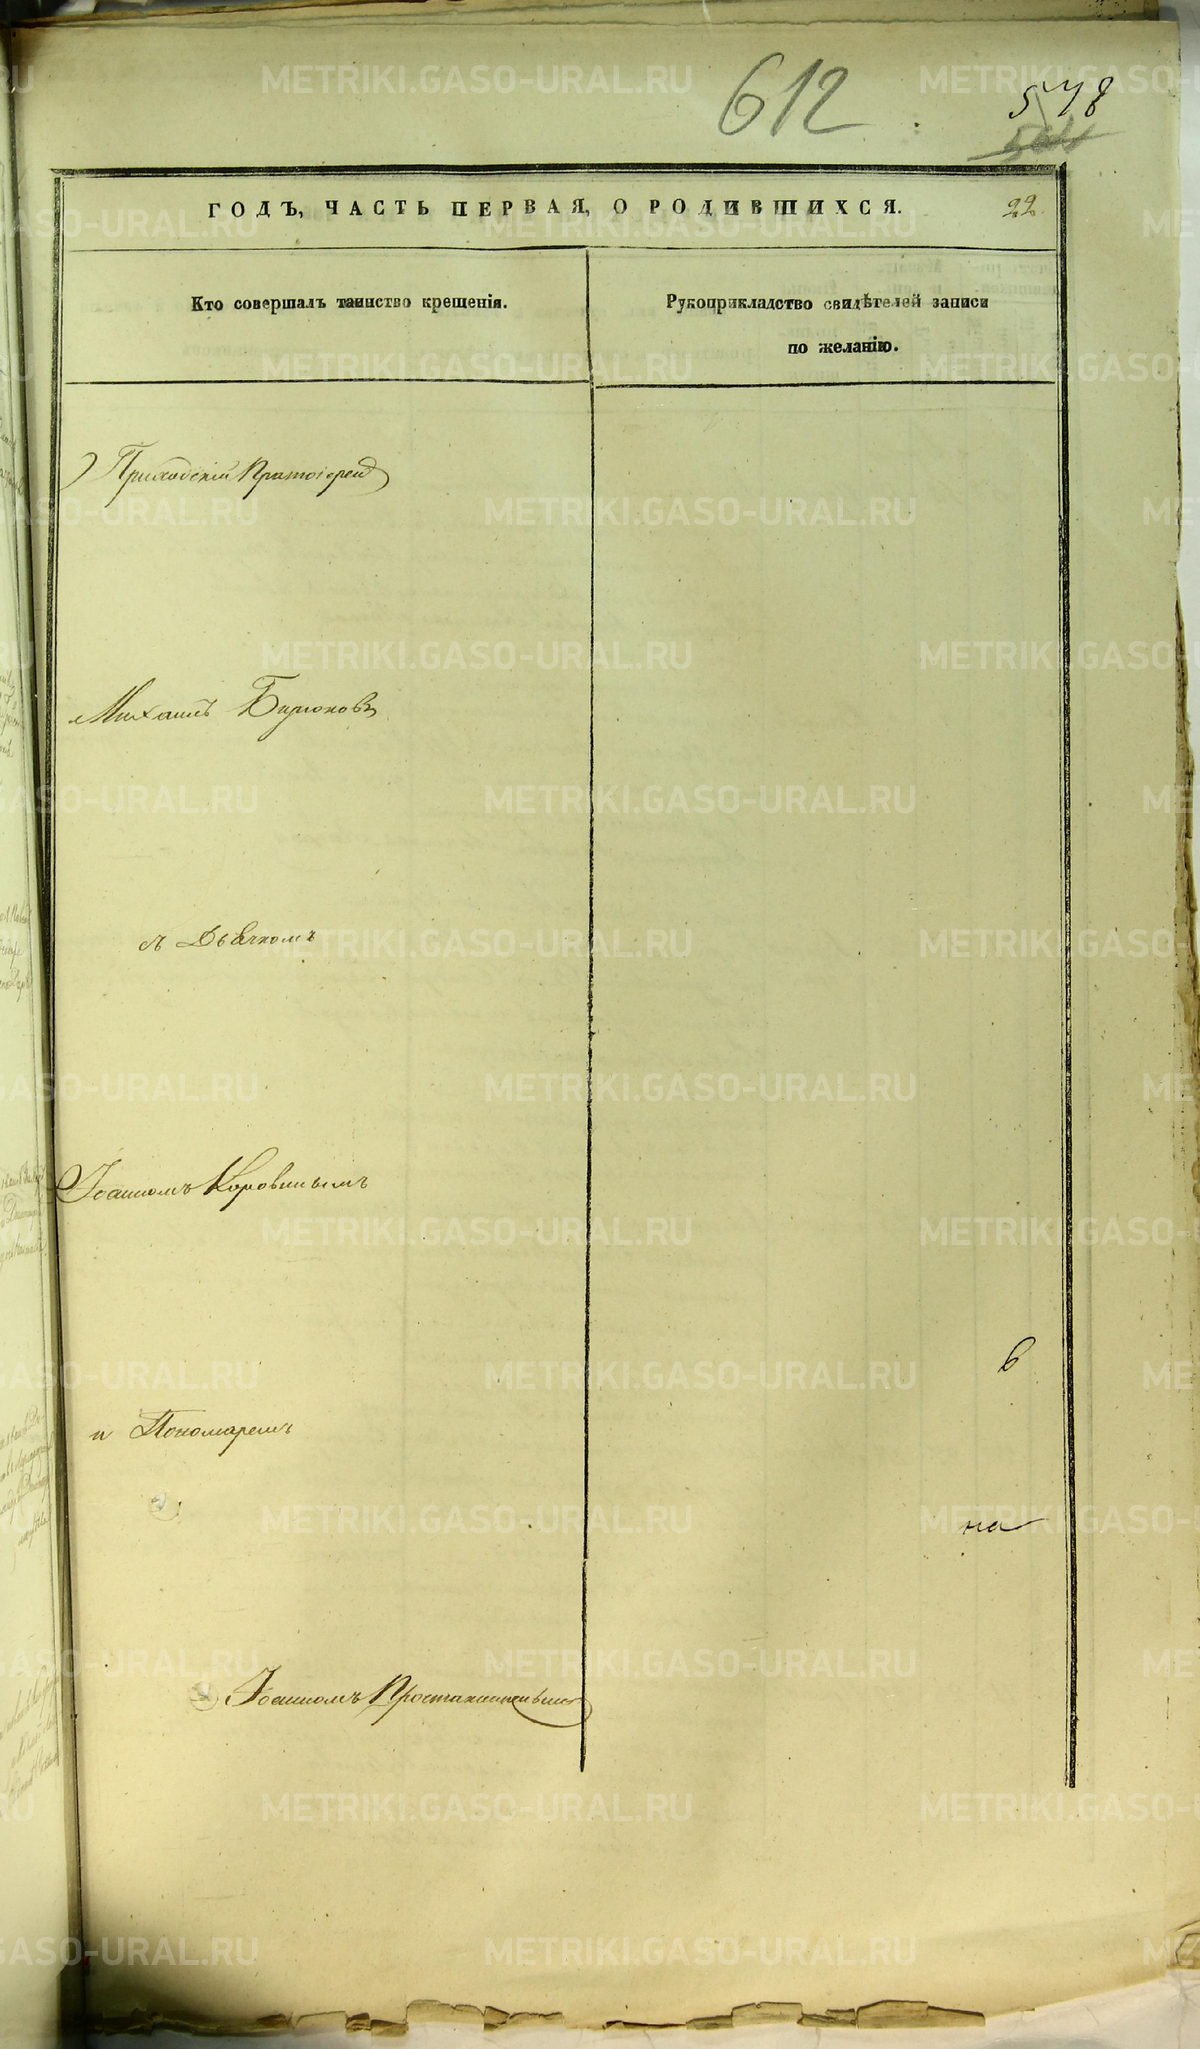 612
548
ГОДЪ, ЧАСТЬ ПЕРВАЯ, О РОДИВШИХСЯ.
22.
Кто совершалъ таинство крещенія.
Рукоприкладство свидѣтелей записи
по желанію.
Приходскій Протоіерей
Михаилъ Бирюковъ
съ Дьячкомъ
Іоанномъ Коровинымъ
в
и Пономаремъ
на
Іоанномъ
METRIKI.GASO-URAL.RU